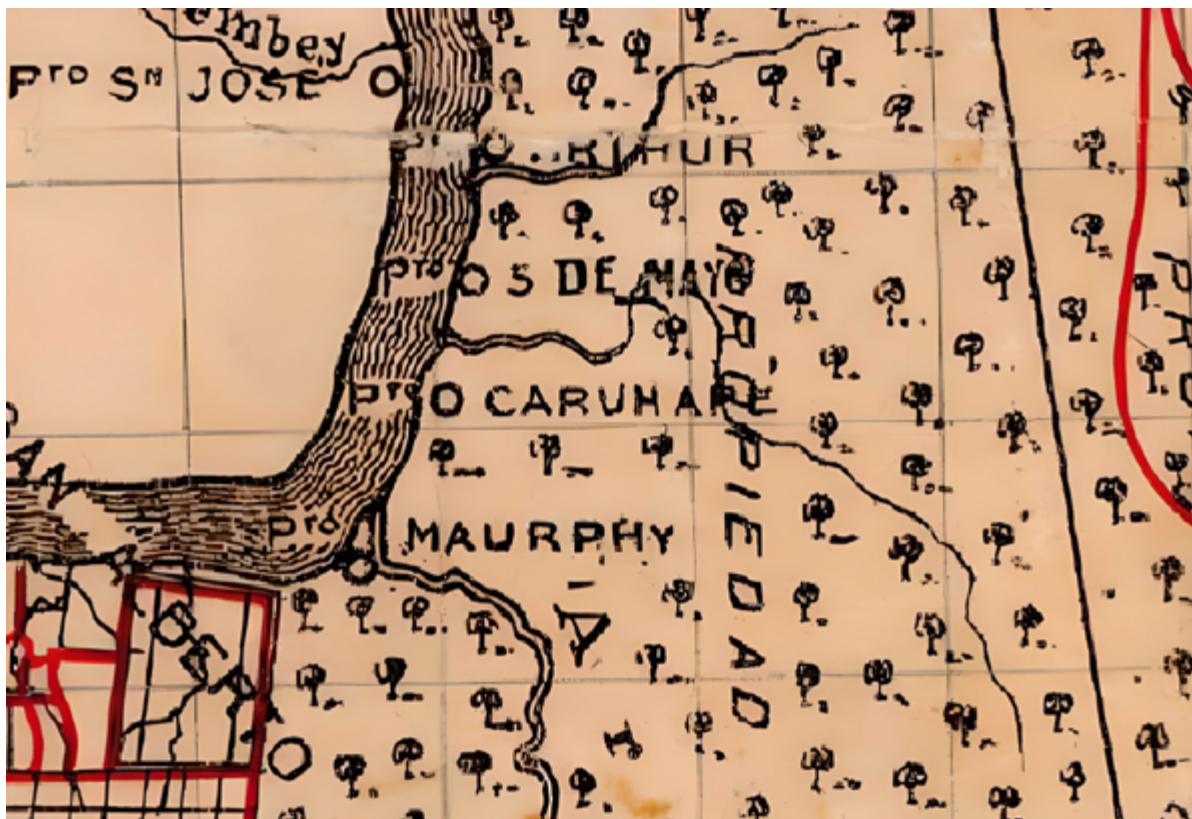 Pto Sn JOSE
RTHUR
Pto 5 DE MAYO
Pto CARUHAPE
Pto MAURPHY
PIEDAD